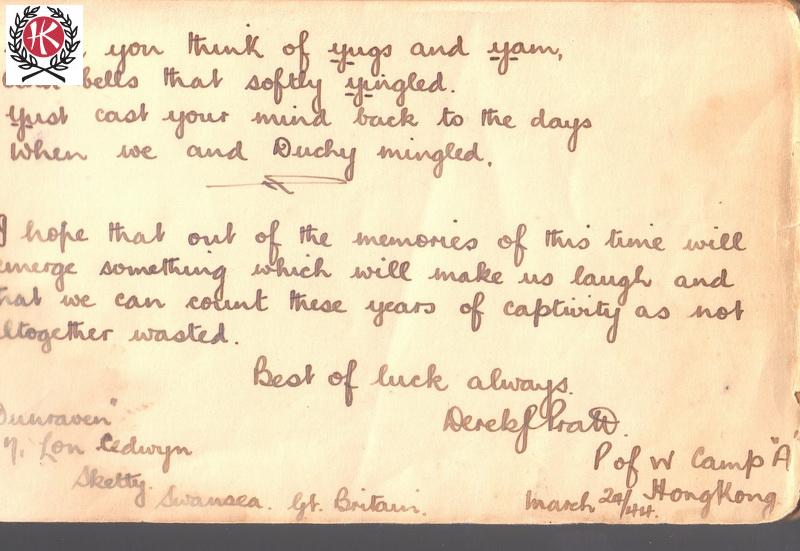 HK
you think of yugs and yam,
bells that softly yingled.
Yust cast your mind back to the days
When we and Duchy mingled.
I hope that out of the memories of this time will
emerge something which will make us laugh and
that we can count these years of captivity as not
altogether wasted.
Best of luck always.
Derek J Pratt.
"Dunraven"
7, Lon Cedwyn
Sketty.
Swansea. Gt. Britain.
P of W Camp "A"
HongKong
March 24/44.